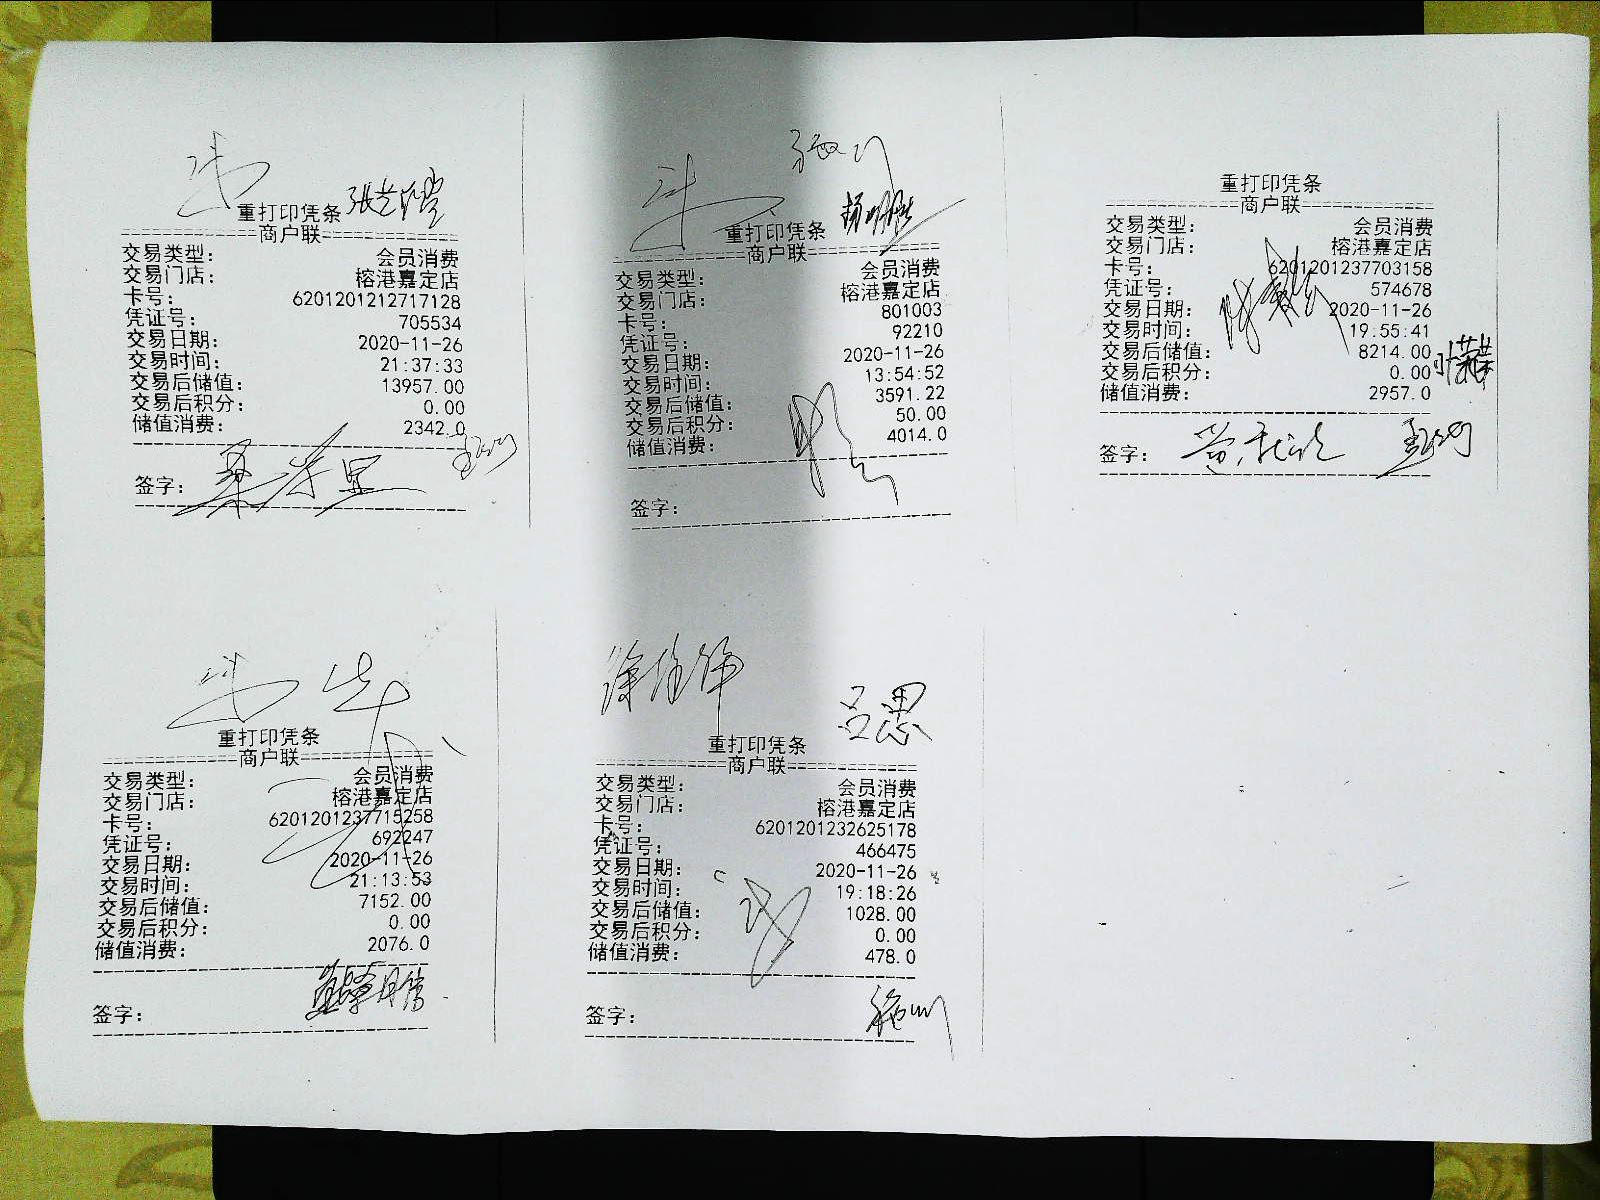 重打印凭条
商户联
交易类型： 会员消费
交易门店： 榕港嘉定店
卡号： 6201201212717128
凭证号： 705534
交易日期： 2020-11-26
交易时间： 21:37:33
交易后储值： 13957.00
交易后积分： 0.00
储值消费： 2342.0
签字：
重打印凭条
商户联
交易类型： 会员消费
交易门店： 榕港嘉定店
卡号： 801003
凭证号： 92210
交易日期： 2020-11-26
交易时间： 13:54:52
交易后储值： 3591.22
交易后积分： 50.00
储值消费： 4014.0
签字：
重打印凭条
商户联
交易类型： 会员消费
交易门店： 榕港嘉定店
卡号： 6201201237703158
凭证号： 574678
交易日期： 2020-11-26
交易时间： 19:55:41
交易后储值： 8214.00
交易后积分： 0.00
储值消费： 2957.0
签字：
重打印凭条
商户联
交易类型： 会员消费
交易门店： 榕港嘉定店
卡号： 6201201237715258
凭证号： 692247
交易日期： 2020-11-26
交易时间： 21:13:53
交易后储值： 7152.00
交易后积分： 0.00
储值消费： 2076.0
签字：
重打印凭条
商户联
交易类型： 会员消费
交易门店： 榕港嘉定店
卡号： 6201201232625178
凭证号： 466475
交易日期： 2020-11-26
交易时间： 19:18:26
交易后储值： 1028.00
交易后积分： 0.00
储值消费： 478.0
签字：